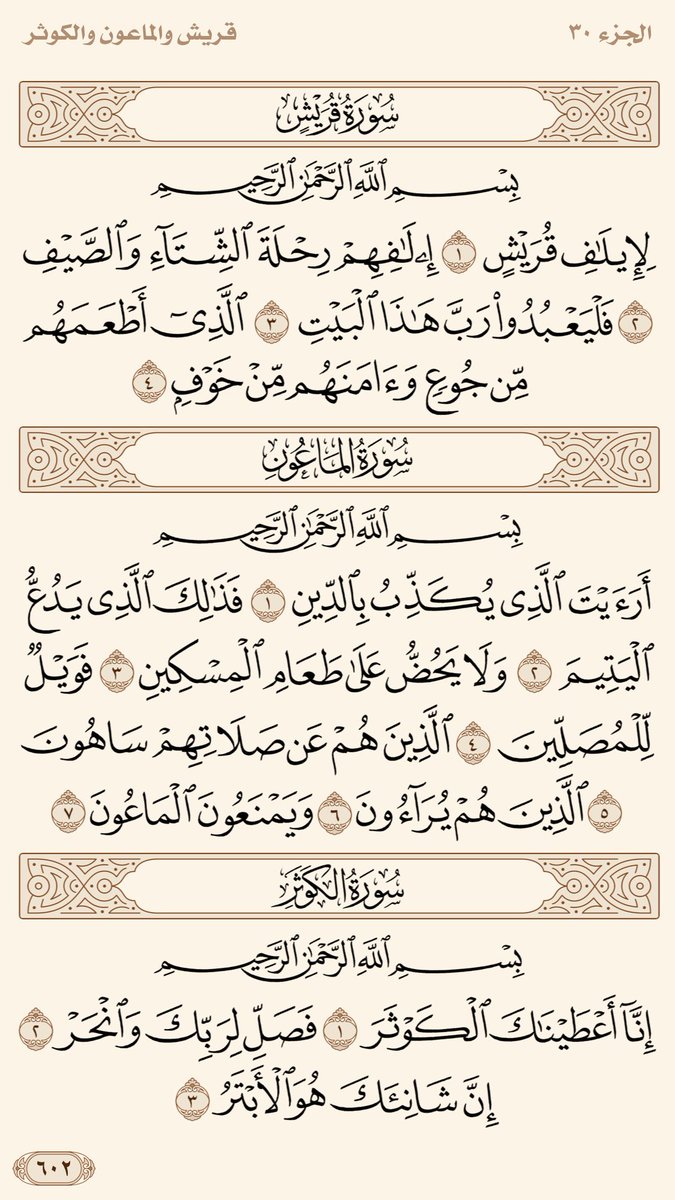 الجزء ٣٠
قريش والماعون والكوثر
سُورَةُ قُرَيْشٍ
بِسْمِ ٱللَّهِ ٱلرَّحْمَٰنِ ٱلرَّحِيمِ
لِإِيلَٰفِ قُرَيْشٍ ١ إِۦلَٰفِهِمْ رِحْلَةَ ٱلشِّتَآءِ وَٱلصَّيْفِ
٢ فَلْيَعْبُدُوا۟ رَبَّ هَٰذَا ٱلْبَيْتِ ٣ ٱلَّذِىٓ أَطْعَمَهُم
مِّن جُوعٍ وَءَامَنَهُم مِّنْ خَوْفٍۭ ٤
سُورَةُ المَاعُونِ
بِسْمِ ٱللَّهِ ٱلرَّحْمَٰنِ ٱلرَّحِيمِ
أَرَءَيْتَ ٱلَّذِى يُكَذِّبُ بِٱلدِّينِ ١ فَذَٰلِكَ ٱلَّذِى يَدُعُّ
ٱلْيَتِيمَ ٢ وَلَا يَحُضُّ عَلَىٰ طَعَامِ ٱلْمِسْكِينِ ٣ فَوَيْلٌ
لِّلْمُصَلِّينَ ٤ ٱلَّذِينَ هُمْ عَن صَلَاتِهِمْ سَاهُونَ
٥ ٱلَّذِينَ هُمْ يُرَآءُونَ ٦ وَيَمْنَعُونَ ٱلْمَاعُونَ ٧
سُورَةُ الكَوْثَرِ
بِسْمِ ٱللَّهِ ٱلرَّحْمَٰنِ ٱلرَّحِيمِ
إِنَّآ أَعْطَيْنَٰكَ ٱلْكَوْثَرَ ١ فَصَلِّ لِرَبِّكَ وَٱنْحَرْ ٢
إِنَّ شَانِئَكَ هُوَ ٱلْأَبْتَرُ ٣
٦٠٢